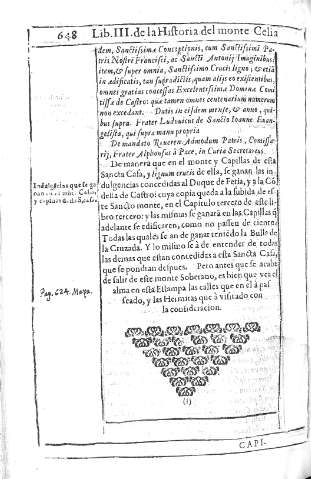 648 Lib. III. de la Historia del monte Celia
dem, Sanctissimæ Conceptionis, cum Sanctissimi Pa-
tris Nostri Francisci, ac Sancti Antonij Imaginibus:
item, & super omnia, Sanctissimo Crucis ligno, & etiã
in ædificatis, tan suprodictis, quam alijs ex existentibus,
omnes gratias concessas Excelentissima Domina Comi
tissæ de Castro: quæ tamen omnes centenarium numerum
non excedant. Datis in eisdem mense, & anno, qui-
bus supra. Frater Ludouicus de Sancto Ioanne Euan-
gelista, qui supra manu propria
De mandato Reueren. Admodum Patris, Comissa-
rij, Frater Alphonsus à Pace, in Curia Secretarius.
De manera que en el monte y Capillas de esta
Sancta Casa, y lignum crucis de ella, se ganan las in
dulgencias concedidas al Duque de Feria, y a la Cõ
desa de Castro: cuya copia queda a la subida de es
te Sancto monte, en el Capitulo tercero de este li-
bro tercero: y las mismas se ganará en las Capillas q̃
adelante se edificaren, como no passen de ciento.
Todas las quales se an de ganar teniẽdo la Bulla de
la Cruzada. Y lo mismo se à de entender de todas
las demas que estan concedidas a esta Sancta Casa,
que se pondran despues. Pero antes que se acabe
de salir de este monte Soberano, es bien que vea el
alma en esta Estampa las calles que en el à pas
seado, y las Hermitas que à visitado con
la consideracion.
Indulgencias que se ga
Pag. 624. Mapa.
(†)
CAPI-